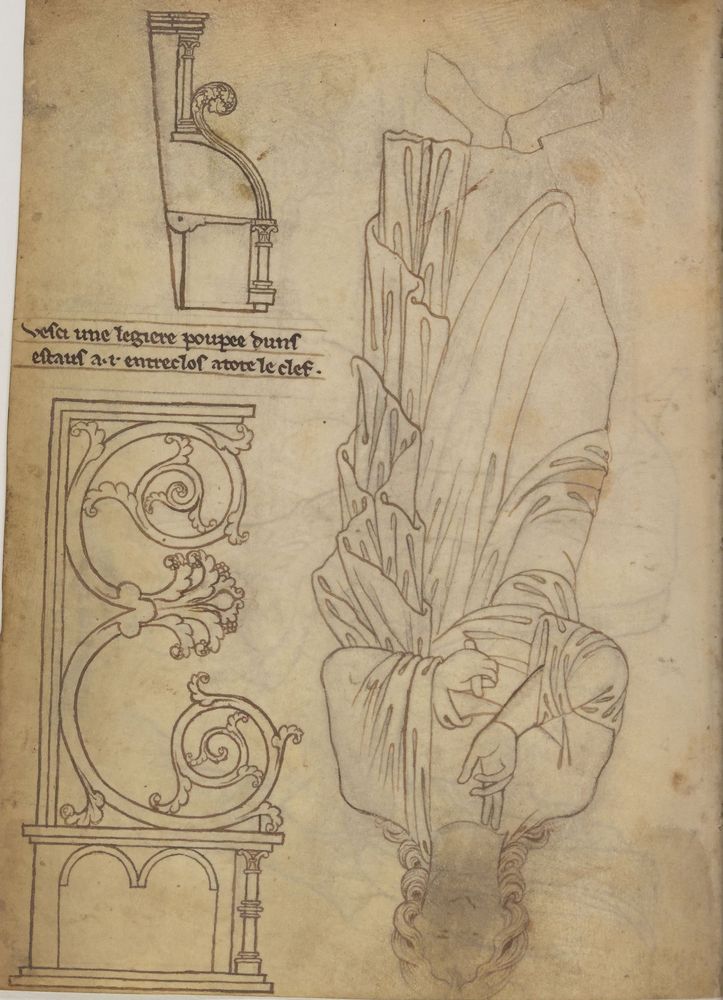 vesci une legiere poupee duns
estaus a·i· entreclos atote le clef·